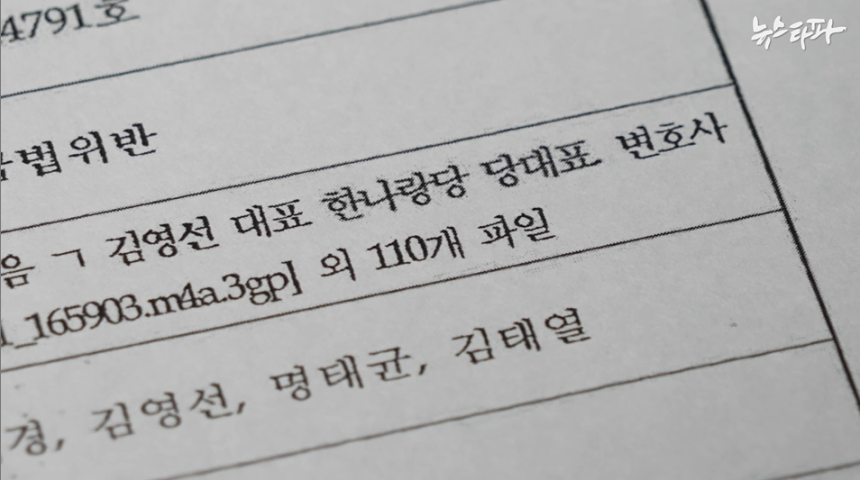 4791호
뉴스타파
법위반
음 ㄱ 김영선 대표 한나랑당 당대표 변호사
_165903.m4a.3gp] 외 110개 파일
경, 김영선, 명태균, 김태열